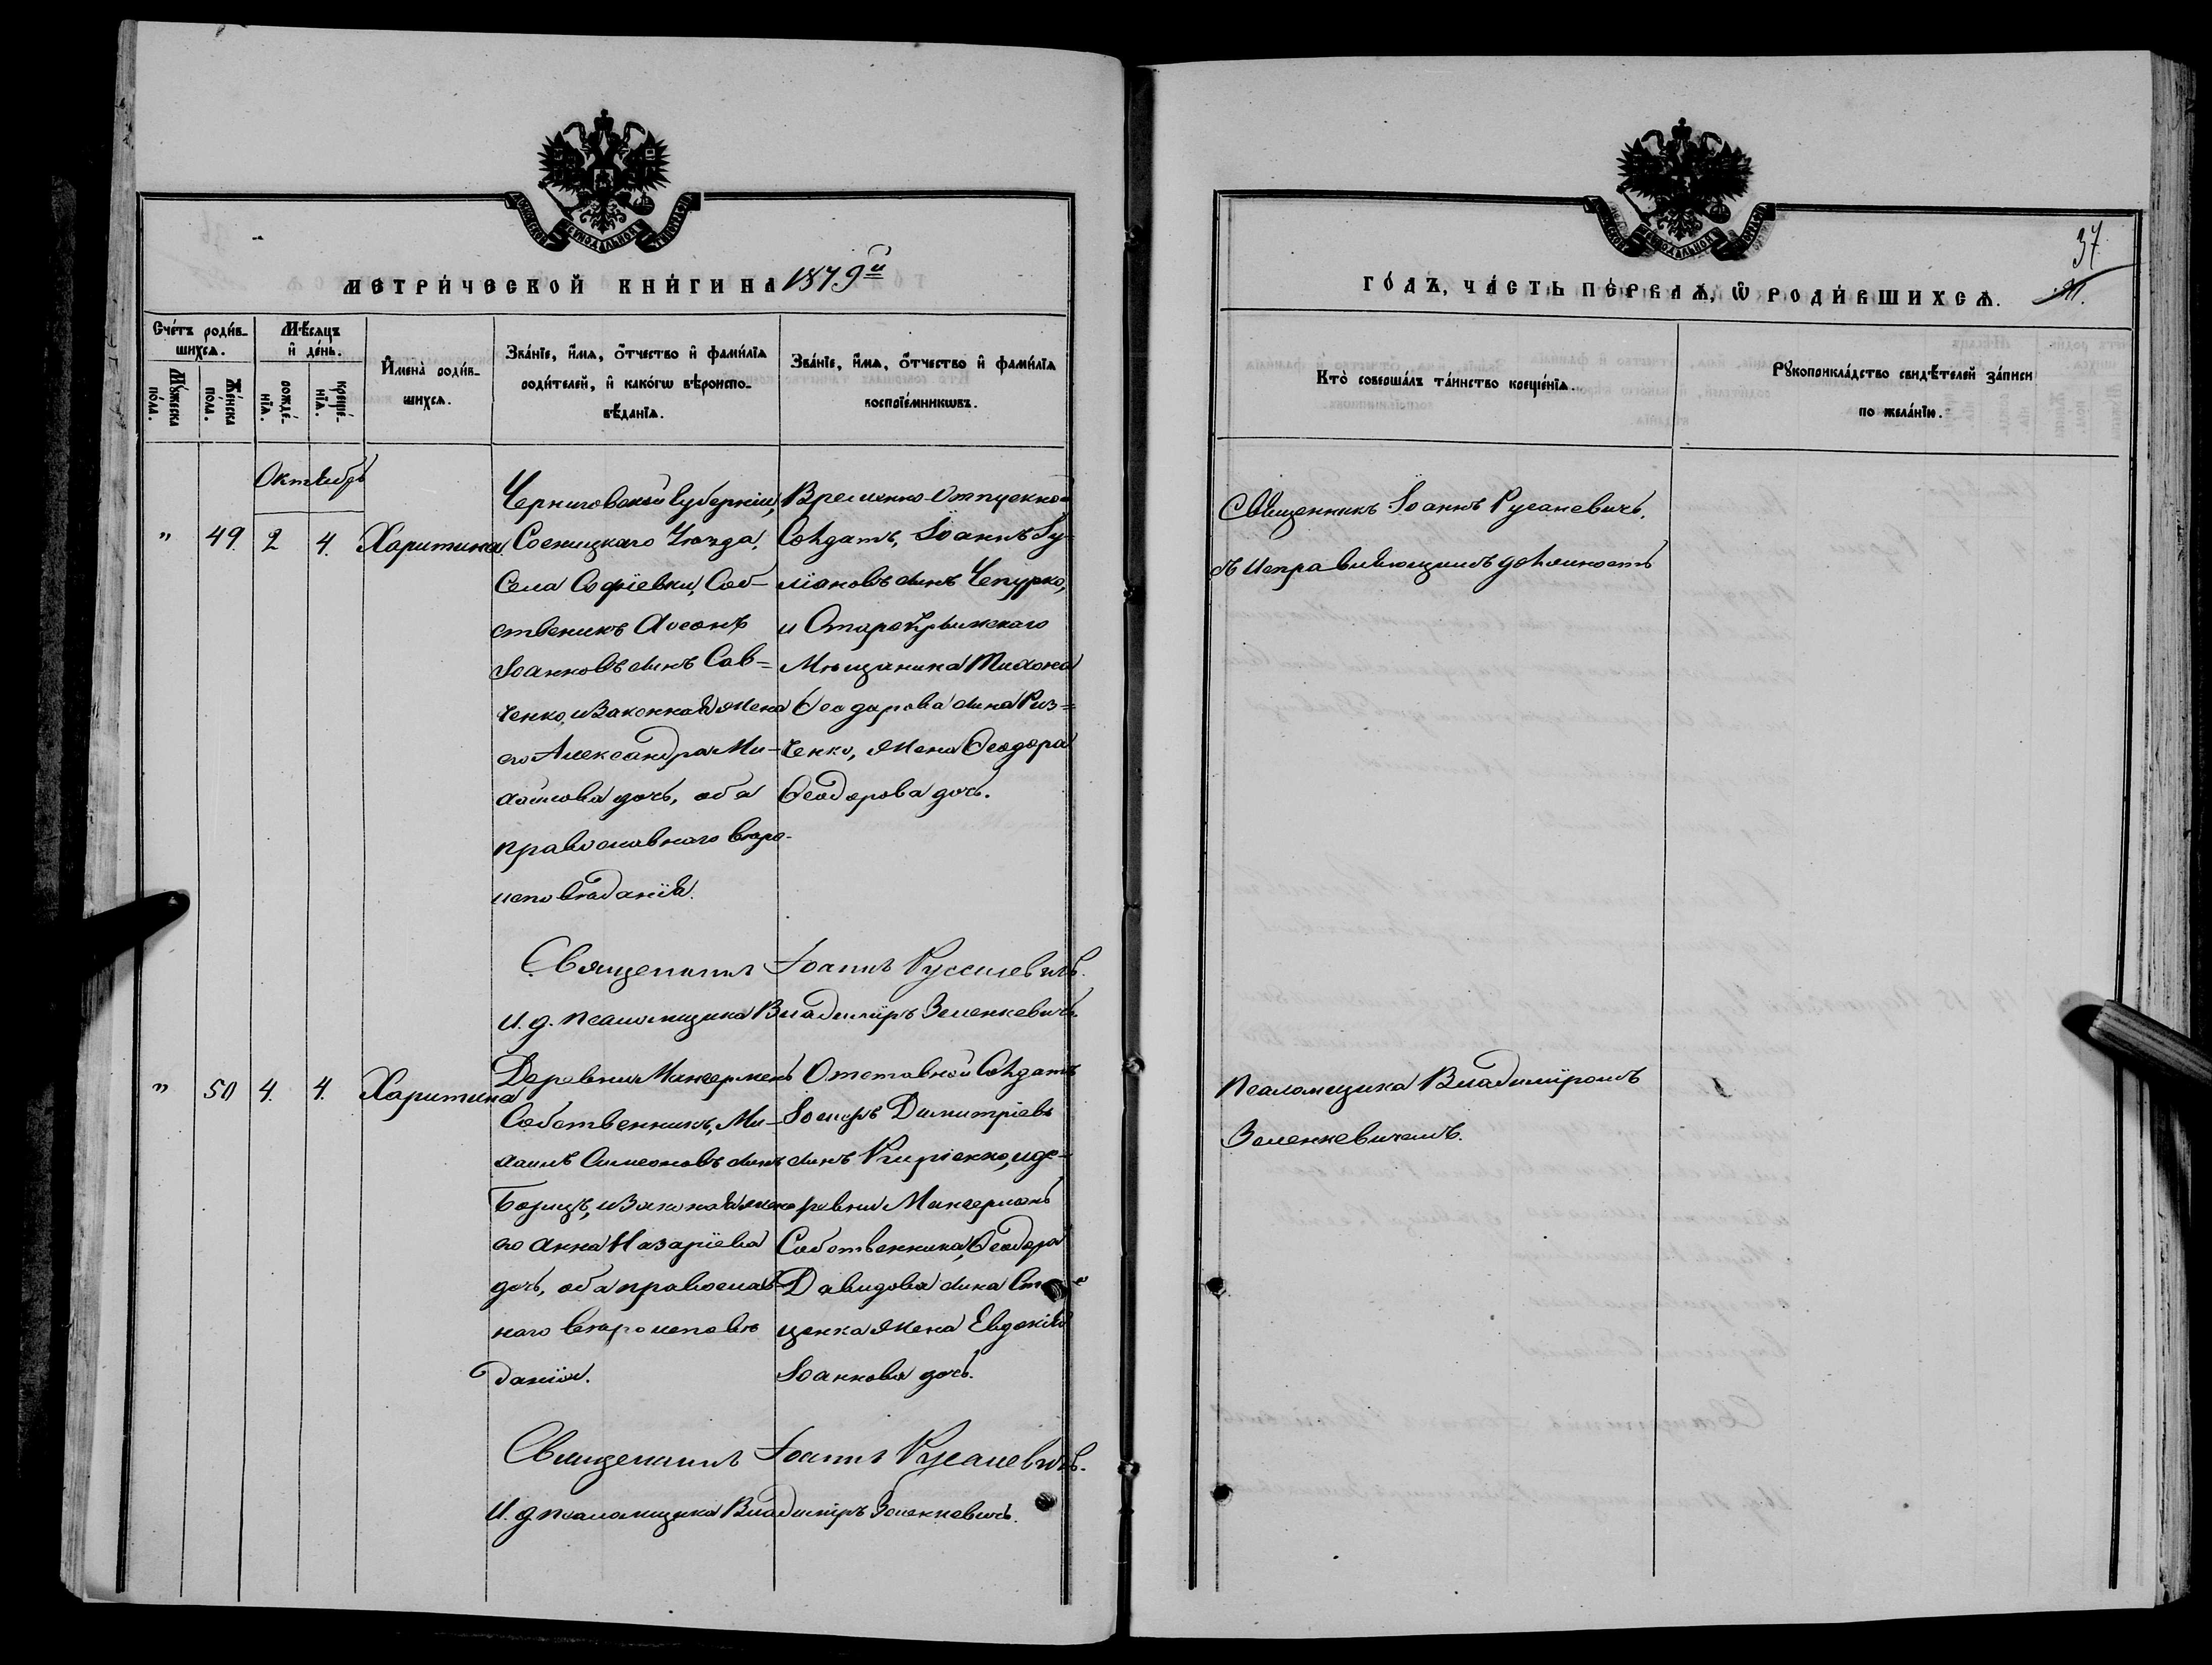 МЕТРИ́ЧЕСКОЙ КНИ́ГИ НА 1879й
Сче́тъ роди́в-
шихсѧ.
Мѣ́сѧцъ
и҆ де́нь.
Мꙋ́жеска по́ла.
Же́нска по́ла.
рожде́-
нїѧ.
креще́-
нїѧ.
И҆мена̀ роди́в-
шихсѧ.
Зва́нїе, и҆́мѧ, ѻ҆́тчество и҆ фами́лїѧ
роди́телей, и҆ како́гѡ вѣроиспо-
вѣ́данїѧ.
Зва́нїе, и҆́мѧ, ѻ҆́тчество и҆ фами́лїѧ
воспрїе́мникѡвъ.
Октябрь
" 49. 2 4. Харитина
Черниговской Губернiи,
Сосницкаго Уѣзда,
Села Софiевки, Соб-
ственикъ
Iоанновъ сынъ Сав=
ченко, и Законная жена
его Александра Ми-
хаилова дочь, оба
православнаго вѣро-
исповѣданiя.
Временно-Отпускной
Солдатъ, Iоаннъ Iу-
лiановъ сынъ Чепурко,
и Старокрымскаго
Мѣщанина Тихона
Ѳеодорова сына Риз=
ченко, жена Ѳеодора
Ѳеодорова дочь.
Священникъ Iоаннъ Русаневичъ.
И. д. псаломщика Владимiръ Зеленкевичъ.
" 50 4. 4. Харитина
Деревни Мангермень
Собственникъ, Ми-
хаилъ Симеоновъ сынъ
и Законная жена
его Анна Назарiева
дочь, оба православ-
наго вѣроисповѣ
данiя.
Отставной Солдатъ
Димитрiевъ
сынъ Кипрiенко, и де-
ревни Мангермень
Собственника, Ѳеодора
Давидова сына
щенка жена Евдокiя
Iоаннова дочь.
Священникъ Iоаннъ Русаневичъ.
И. д. псаломщика Владимiръ Зеленкевичъ.
ГО́ДЪ, ЧА́СТЬ ПЕ́РВАѦ, Ѡ҆ РОДИ́ВШИХСѦ.
37.
Кто̀ соверша́лъ та́инство креще́нїѧ.
Рꙋкоприкла́дство свидѣ́телей за́писи
по жела́нїю.
Священникъ Iоаннъ Русаневичъ,
съ исправляющимъ должность
псаломщика Владимiромъ
Зеленкевичемъ.